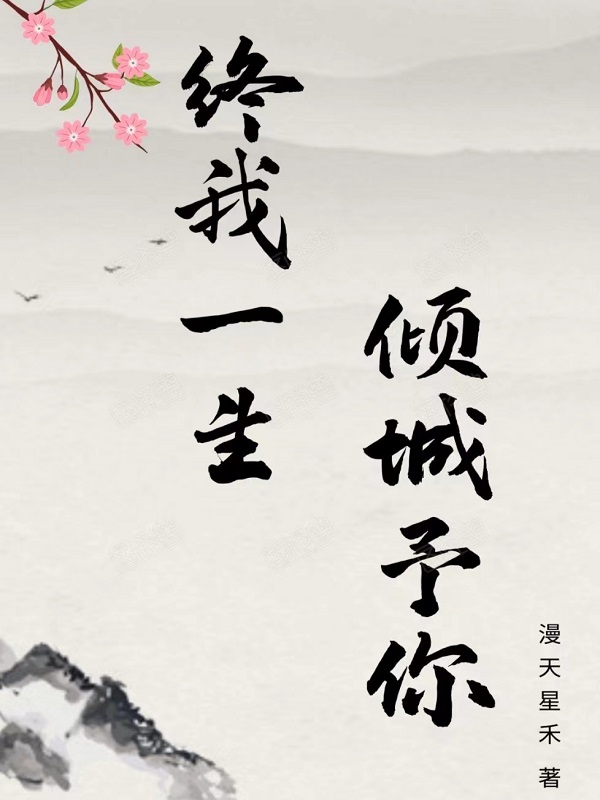 终我一生
倾城予你
漫天星禾 著